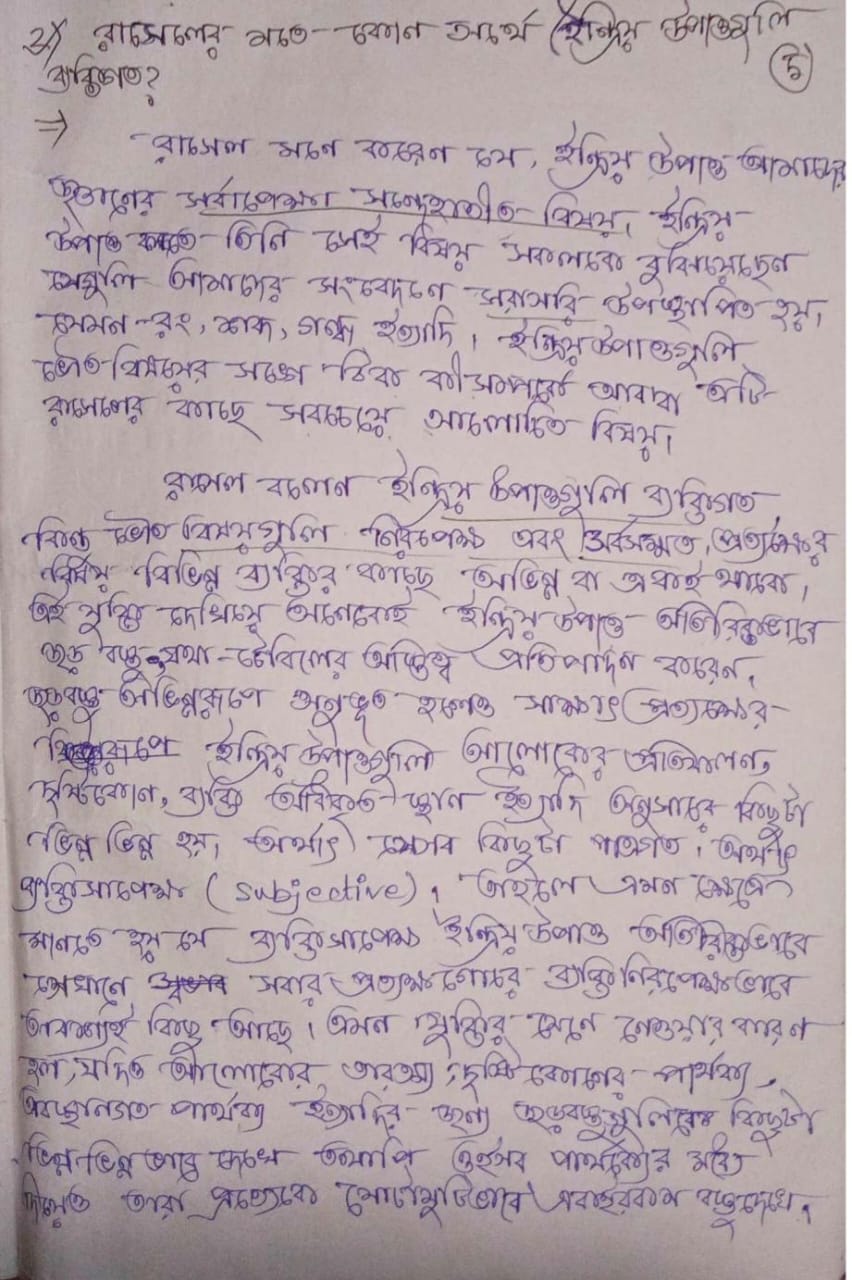 ২) রাসেলের মতে কোন অর্থে ইন্দ্রিয় উপাত্তগুলি
ব্যক্তিগত? ৫
⇒
রাসেল মনে করেন যে, ইন্দ্রিয় উপাত্ত আমাদের
জ্ঞানের সর্বাপেক্ষা সন্দেহাতীত বিষয়। ইন্দ্রিয়
উপাত্ত বলতে তিনি সেই বিষয় সকলকে বুঝিয়েছেন
যেগুলি আমাদের সংবেদনে সরাসরি উপস্থাপিত হয়।
যেমন - রং, শব্দ, গন্ধ ইত্যাদি। ইন্দ্রিয় উপাত্তগুলি
ভৌত বিষয়ের সঙ্গে ঠিক কী সম্পর্কে আবদ্ধ এটি
রাসেলের কাছে সবচেয়ে আলোচিত বিষয়।
রাসেল বলেন ইন্দ্রিয় উপাত্তগুলি ব্যক্তিগত
কিন্তু ভৌত বিষয়গুলি নিরপেক্ষ এবং সর্বসম্মত, প্রত্যক্ষের
বিষয় বিভিন্ন ব্যক্তির কাছে অভিন্ন বা একই থাকে।
এই যুক্তি দেখিয়ে অনেকেই ইন্দ্রিয় উপাত্ত অতিরিক্তভাবে
জড় বস্তু যথা - টেবিলের অস্তিত্ব প্রতিপাদন করেন।
জড়বস্তু অভিন্নরূপে অনুভূত হলেও সাক্ষাৎ প্রত্যক্ষের
ইন্দ্রিয় উপাত্তগুলি আলোকের প্রতিফলন,
দৃষ্টিকোন, ব্যক্তি অধিকৃত স্থান ইত্যাদি অনুসারে কিছুটা
ভিন্ন ভিন্ন হয়। অর্থাৎ সেসব কিছুটা পাত্রগত। অর্থাৎ
ব্যক্তিসাপেক্ষ (subjective)। তাহলে এমন ক্ষেত্রে
মানতে হয় যে ব্যক্তিসাপেক্ষ ইন্দ্রিয় উপাত্ত অতিরিক্তভাবে
সেখানে সবার প্রত্যক্ষগোচর ব্যক্তি নিরপেক্ষভাবে
অবশ্যই কিছু আছে। এমন যুক্তির মেনে নেওয়ার কারণ
হল, যদিও আলোকের তারতম্য, দৃষ্টি কোনের পার্থক্য,
অবস্থানগত পার্থক্য ইত্যাদির জন্য জড়বস্তুগুলিকে কিছুটা
ভিন্ন ভিন্ন ভাবে দেখে তথাপি ওইসব পার্থক্যের মধ্যে
দিয়েও তারা প্রত্যেকে মোটামুটিভাবে একইরকম বস্তু দেখে।